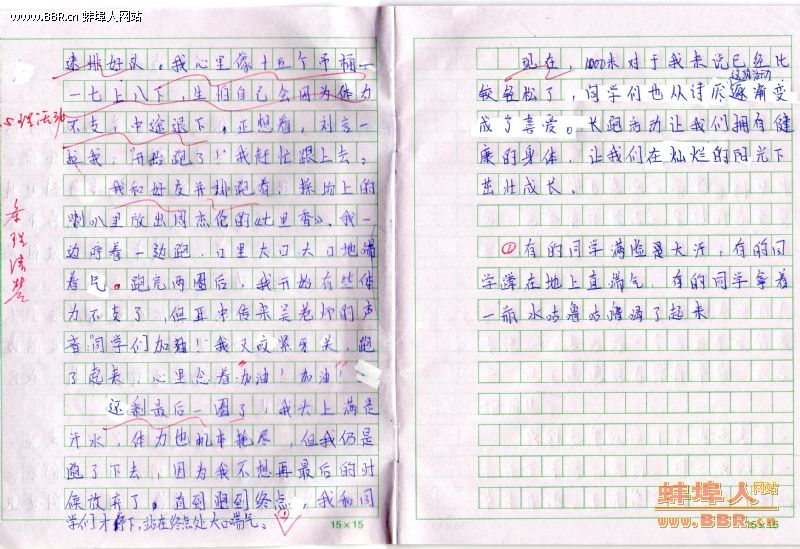 www.BBR.cn 蚌埠人网站
速排好队。我心里像十五个吊桶一
一七上八下，生怕自己会因为体力
不支，中途退下。正想着，刘言一
我，"开始跑了！"我赶忙跟上去。
我和好友并排跑着，操场上的
喇叭里放出周杰伦的《七里香》，我一
边听着一边跑，口里大口大口地喘
着气。跑完两圈后，我开始有些体
力不支了，但耳中传来吴老师的声
音"同学们加油！"我又咬紧牙关，跑
了起来，心里念着"加油！加油！"
还剩最后一圈了，我头上满是
汗水，体力也几乎耗尽，但我仍是
跑了下去，因为我不想再最后的时
候放弃了。直到跑到终点，我和同
学们才停下，站在终点处大口喘气。
①
15×15
心理活动
条理清楚
现在，1000米对于我来说已经比
较轻松了，同学们也从讨厌逐渐变
这项活动
成了喜爱。长跑活动让我们拥有健
康的身体，让我们在灿烂的阳光下
茁壮成长。
①有的同学满脸是大汗，有的同
学蹲在地上直喘气，有的同学拿着
一瓶水咕噜咕噜喝了起来
蚌埠人网站
www.BBR.cn
15×15